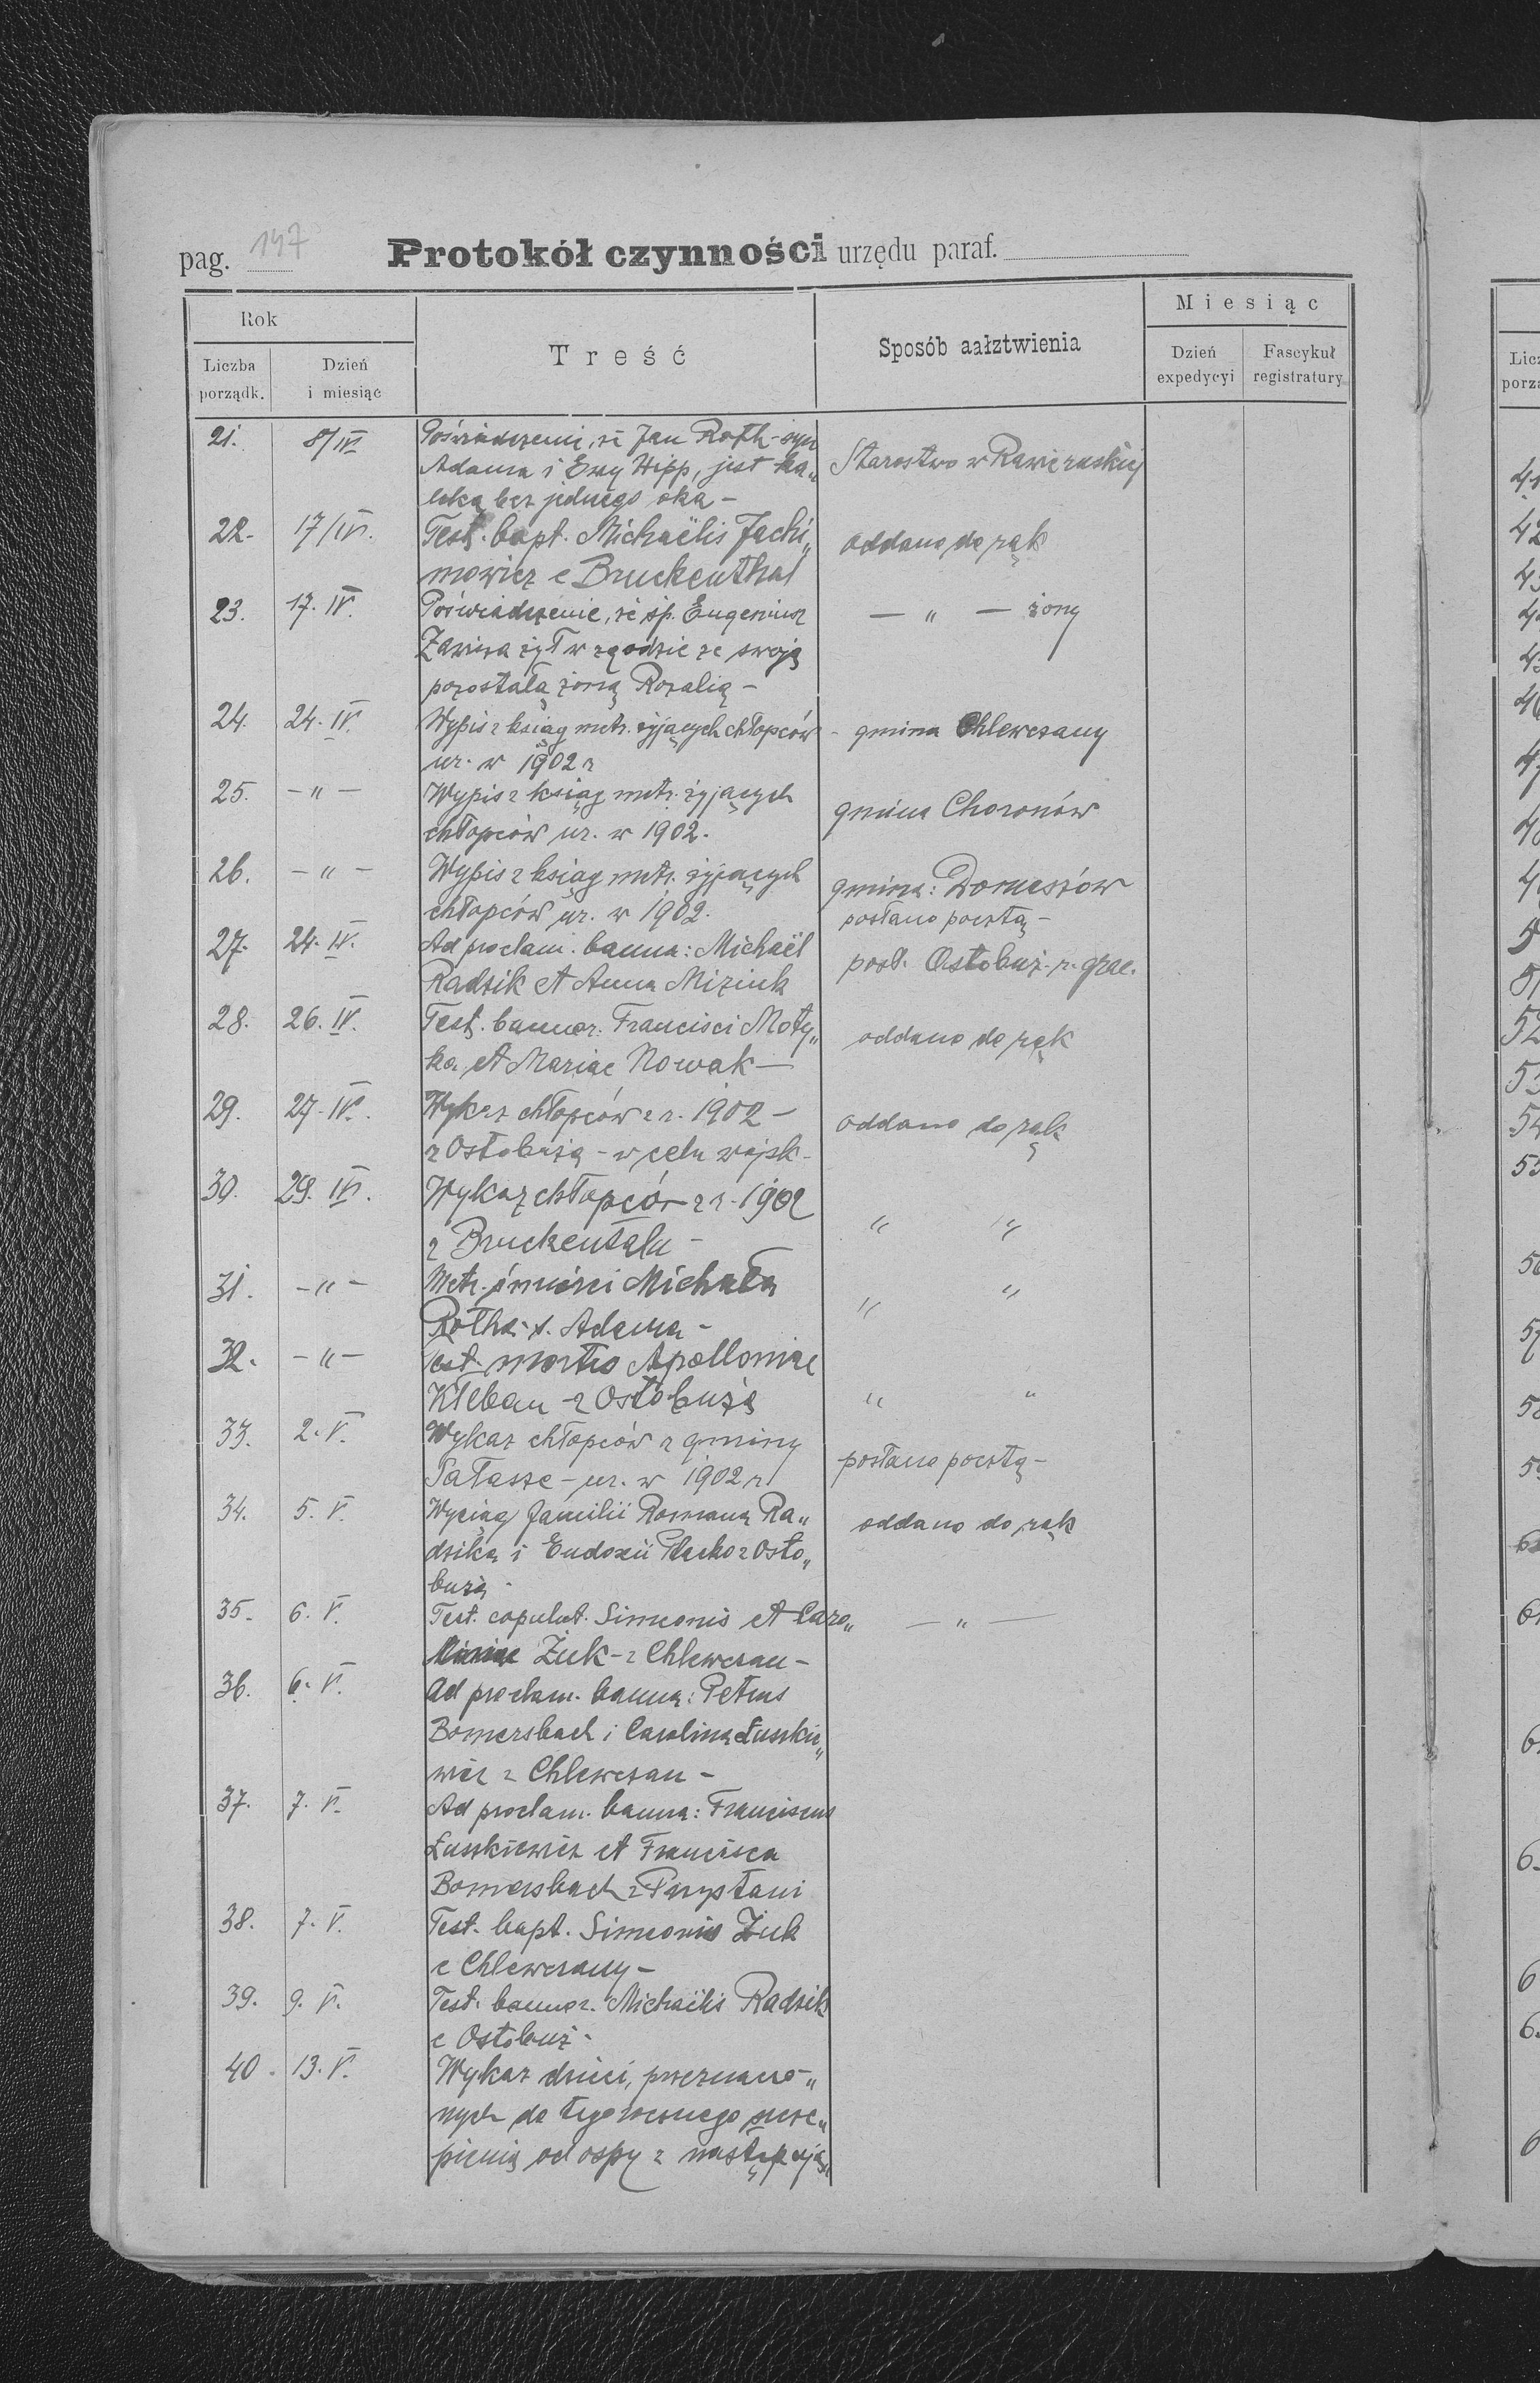 pag. 147 Protokół czynności urzędu paraf.
Rok
Miesiąc
Liczba porządk.
Dzień i miesiąc
Treść
Sposób aałztwienia
Dzień expedycyi
Fascykuł registratury
21. 8/IV Poświadczenie, że Jan Roth - syn
Adama i Ewy Hipp, jest ka„ Starostwo w Rawie ruskiej
leką bez jednego oka -
22. 17/IV. Test. bapt. Michaëlis Jachi„ oddano do rąk
mowicz e Bruckenthal
23. 17. IV. Poświadczenie, że śp. Eugeniusz — „ — żony
Zawisza żył w zgodzie ze swoją
pozostałą żoną Rozalią -
24. 24. IV. Wypis z ksiąg metr. żyjących chłopców - gmina Chlewczany
ur. w 1902 r
25. - „ - Wypis z ksiąg metr. żyjących gmina Choronów
chłopców ur. w 1902.
26. - „ - Wypis z ksiąg metr. żyjących gmina: Domaszów
chłopców ur. w 1902. posłano pocztą -
27. 24. IV. Ad proclam. banna: Michaël post. Ostobuż r. grae.
Radzik et Anna Miziuk
28. 26. IV. Test. bannor. Francisci Moty„ oddano do rąk
ka et Mariae Nowak —
29. 27. IV. Wykaz chłopców z r. 1902 - oddano do rąk
z Ostobuża - w celu wojsk -
30. 29. IV. Wykaz chłopców z r. 1902 „ „
z Bruckentalu -
31. - „ - Metr. śmierci Michała „ „
Rotha s. Adama -
32. - „ - Test. mortis Apolloniae
Kleban z Ostobuża „ „
33. 2. V. Wykaz chłopców z gminy posłano pocztą -
Sałasze - ur. w 1902 r.
34. 5. V. Wyciąg familii Romana Ra„ oddano do rąk
dzika i Eudoxii z Osto„
buża -
35. 6. V. Test. copulat. Simeonis et Caro„ — „ —
linae Żuk - z Chlewczan -
36. 6. V. Ad proclam. banna: Petrus
Bomersbach i Carolina Łuszkie„
wicz z Chlewczan -
37. 7. V. Ad proclam. banna: Franciscus
Łuszkiewicz et Francisca
Bomersbach z Przystani
38. 7. V. Test. bapt. Simeonis Żuk
e Chlewczany -
39. 9. V. Test. bannor. Michaëlis Radzik
e Ostobuż -
40. 13. V. Wykaz dzieci, przeznaczo„
nych do tegorocznego szcze„
pienia od ospy z następują„